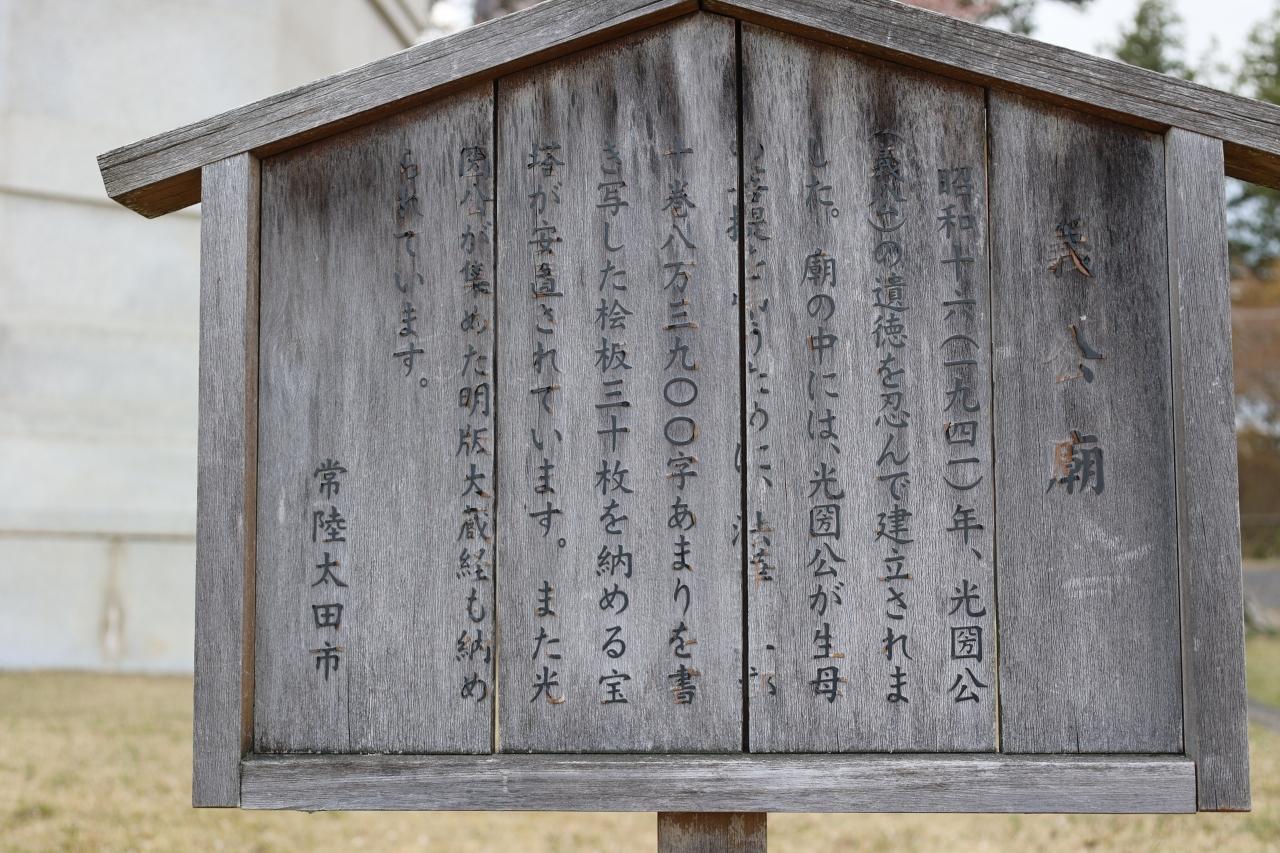 義公廟
昭和十六(一九四一)年、光圀公
(義公)の遺徳を忍んで建立されま
した。廟の中には、光圀公が生母
の菩提をとむらうために、法華一部
十巻八万三九〇〇字あまりを書
き写した桧板三十枚を納める宝
塔が安置されています。また光
圀公が集めた明版大蔵経も納め
られています。
常陸太田市